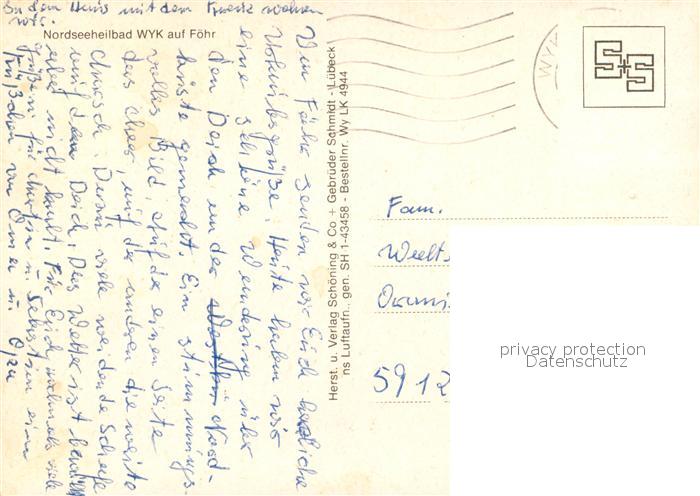 In dem Haus mit dem Kreuz wohnen
wir.
Nordseeheilbad WYK auf Föhr
Von Föhr senden wir Euch herzliche
Urlaubsgrüße. Heute haben wir
eine schöne Wanderung über
den Deich an der Nord-
küste gemacht. Ein stimmungs-
volles Bild, auf der einen Seite
das Meer, auf der anderen die weite
Marsch. Dazu viele weidende Schafe
auf dem Deich. Das Wetter ist
aber nicht kalt. Für Euch nochmals viele
Grüße, für u. Sebastian ein
Küßchen von Oma u. Opa
Herst. u. Verlag Schöning & Co + Gebrüder Schmidt - Lübeck
ns Luftaufn.. gen. SH 1-43458 - Bestellnr. Wy LK 4944
WYK
Fam.
5912
privacy protection
Datenschutz